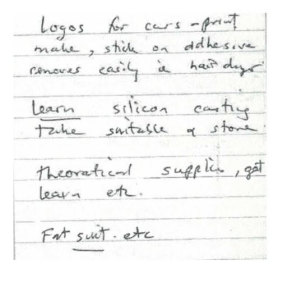 Logos for cars - print
make, stick on adhesive
removes easily ie hair dryer
learn silicon casting
take suitable stone
theoretical supplies, get
learn etc.
Fat suit. etc